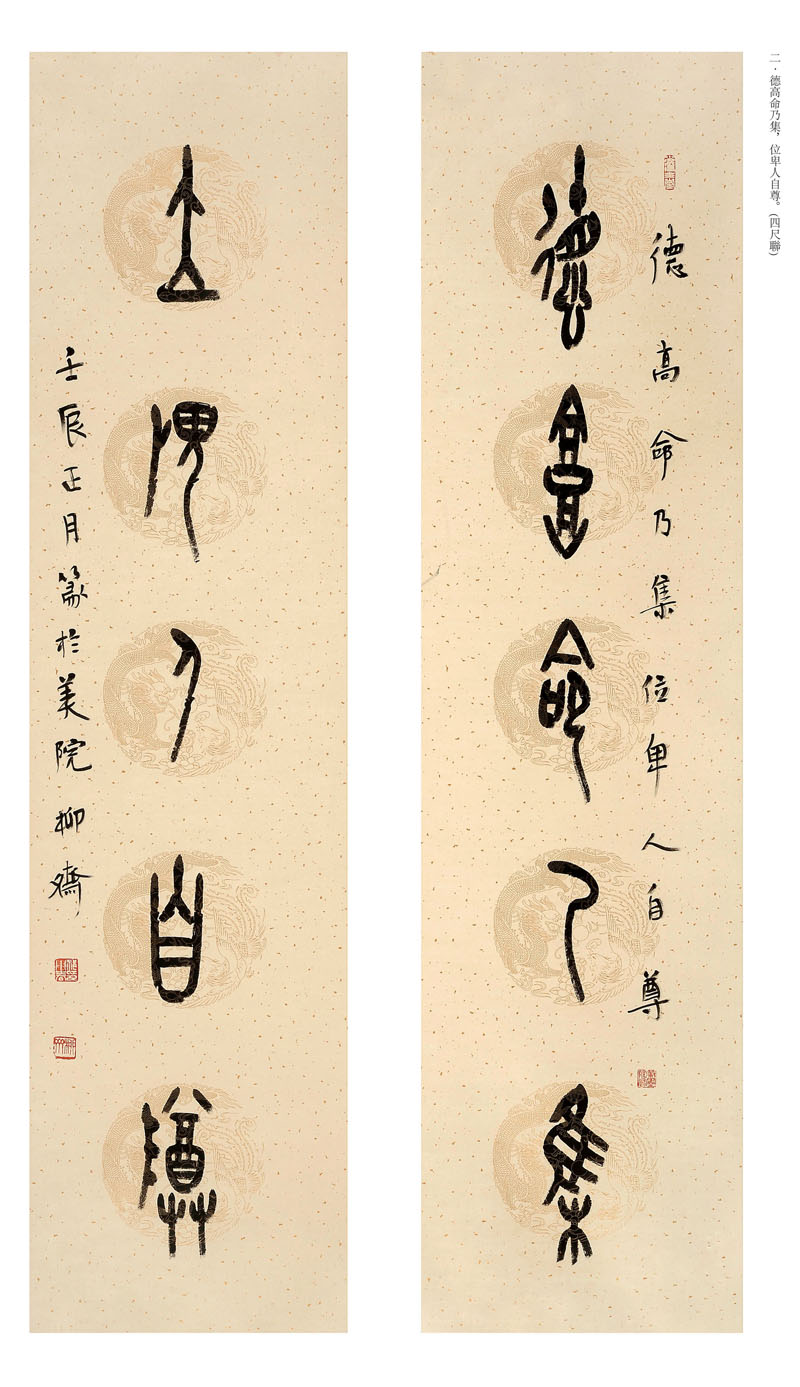 二·德高命乃集，位卑人自尊。(四尺聯)
德高命乃集位卑人自尊
德高命乃集
立𤰞人自尊
壬辰正月篆於美院柳齋